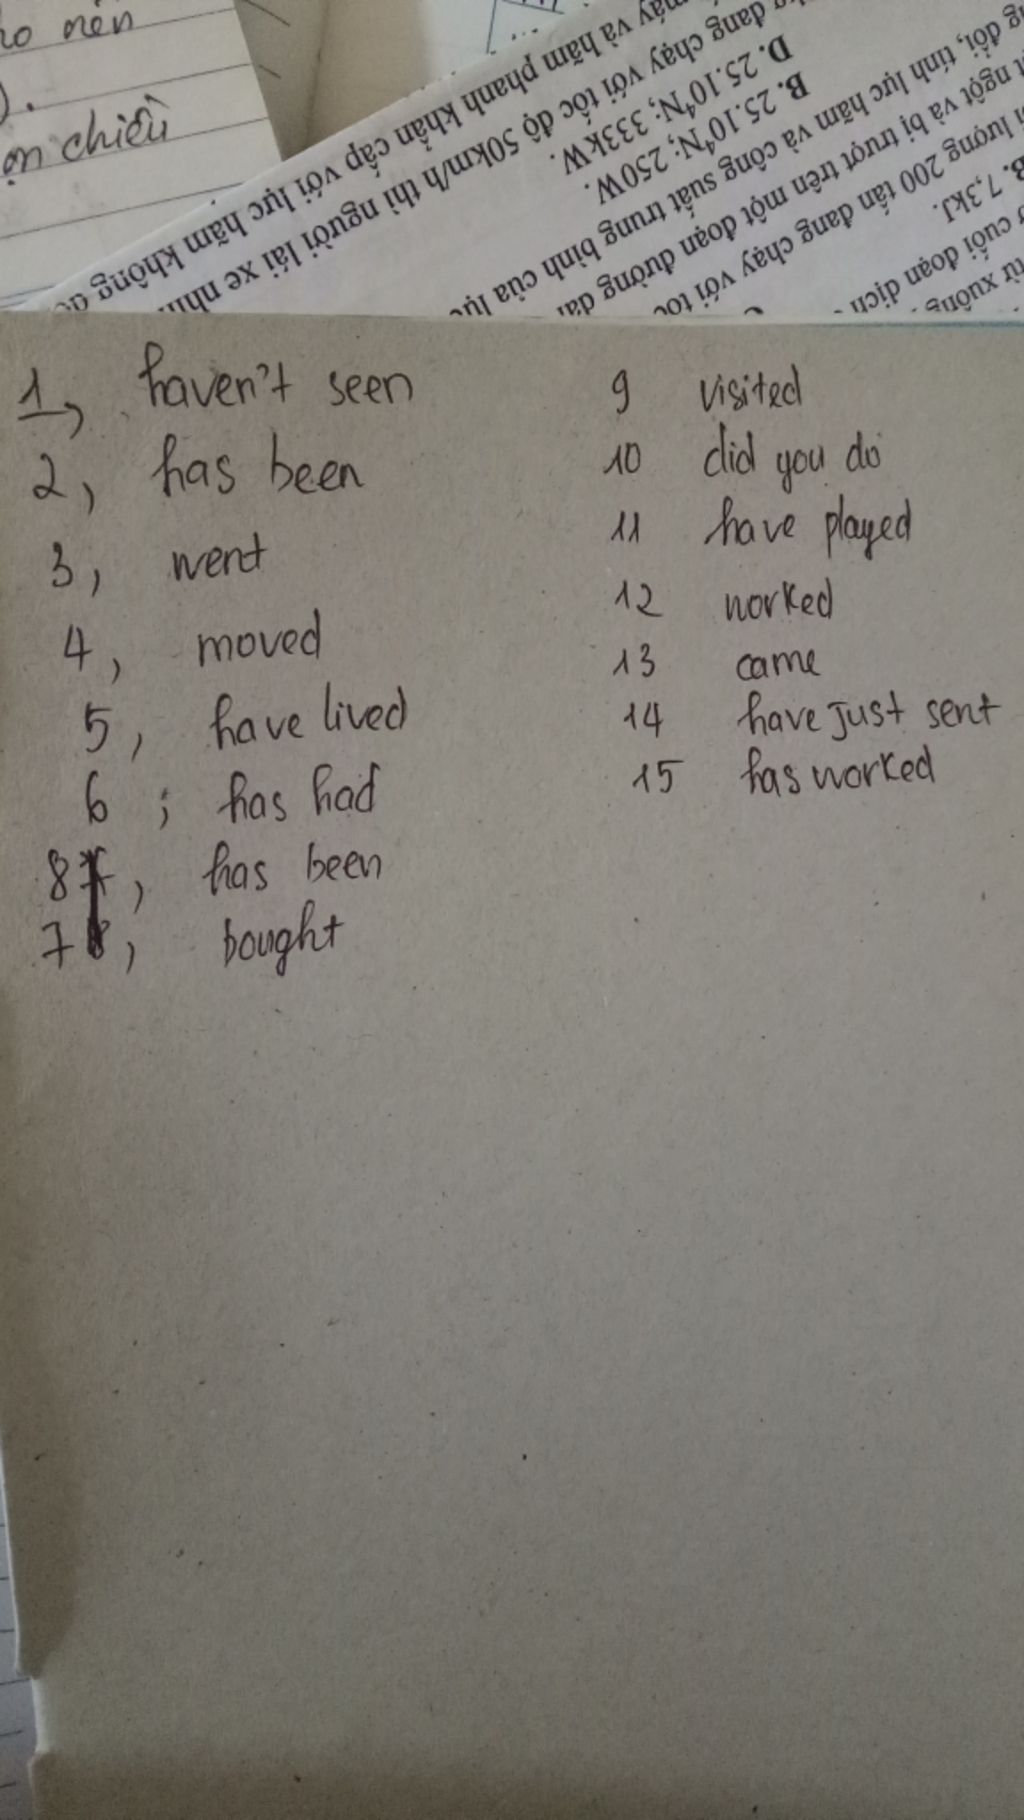 ho nên
).
ộn chiều
máy và hãm phanh khẩn cấp với lực hãm không
đang chạy với tốc độ 50km/h thì người lái xe
D. 25.10⁴N; 333kW.
B. 25.10⁴N; 250W.
đổi, tính lực hãm và công suất trung bình của lực
ngột và bị trượt trên một đoạn đường dài
lượng 200 tấn đang chạy với tốc
B. 7,3kJ.
cuối đoạn dịch
xuống
1, haven't seen
2, has been
3, went
4, moved
5, have lived
6; has had
8, has been
7, bought
9 visited
10 did you do
11 have played
12 worked
13 came
14 have just sent
15 has worked